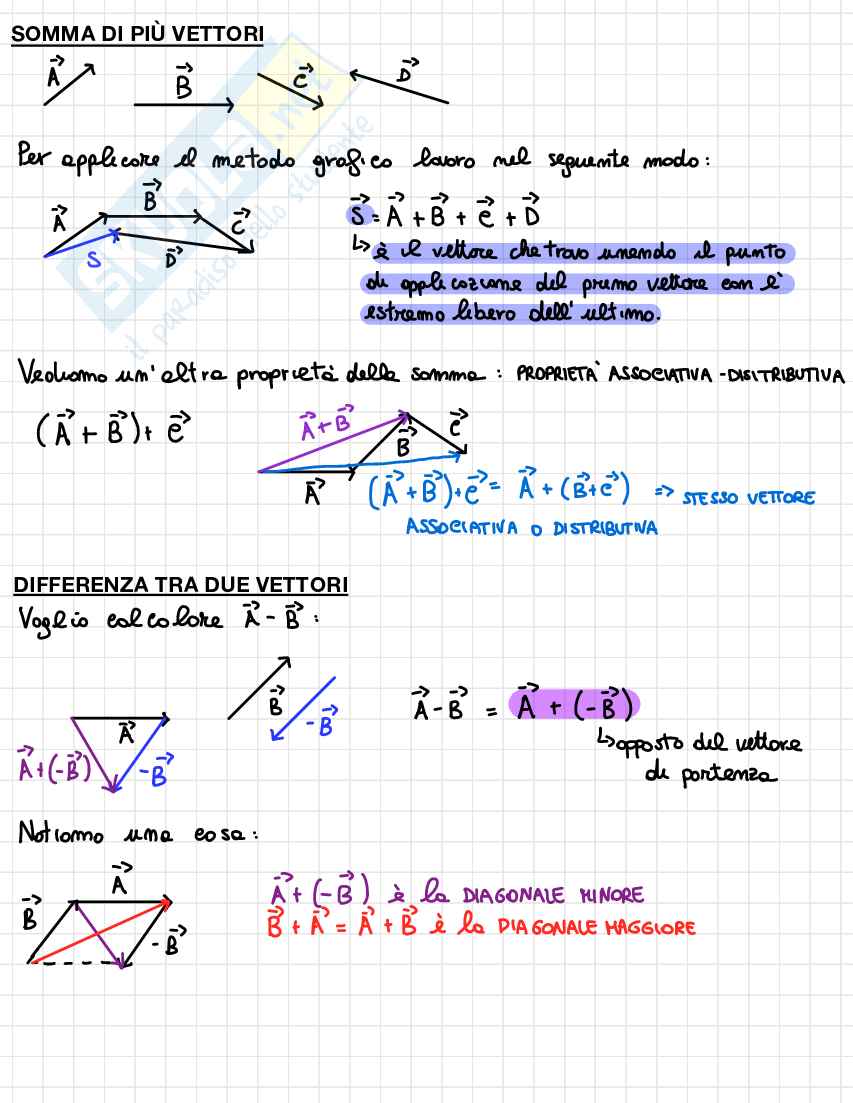 SOMMA DI PIÙ VETTORI
A⃗ B⃗ C⃗ D⃗
Per applicare il metodo grafico lavoro nel seguente modo:
A⃗ B⃗ C⃗ D⃗ S
S⃗ = A⃗ + B⃗ + C⃗ + D⃗
↳ è il vettore che trovo unendo il punto
di applicazione del primo vettore con l'
estremo libero dell'ultimo.
SKUOLA.net
il paradiso dello studente
Vediamo un'altra proprietà della somma: PROPRIETÀ ASSOCIATIVA-DISITRIBUTIVA
(A⃗ + B⃗) + C⃗
A⃗+B⃗ B⃗ C⃗ A⃗
(A⃗+B⃗)+C⃗ = A⃗ + (B⃗+C⃗) => STESSO VETTORE
ASSOCIATIVA O DISTRIBUTIVA
DIFFERENZA TRA DUE VETTORI
Voglio calcolare A⃗ - B⃗ :
A⃗ -B⃗ A⃗+(-B⃗)
B⃗ -B⃗
A⃗ - B⃗ = A⃗ + (-B⃗)
↳ opposto del vettore
di partenza
Notiamo una cosa:
A⃗ B⃗ -B⃗
A⃗ + (-B⃗) è la DIAGONALE MINORE
B⃗ + A⃗ = A⃗ + B⃗ è la DIAGONALE MAGGIORE